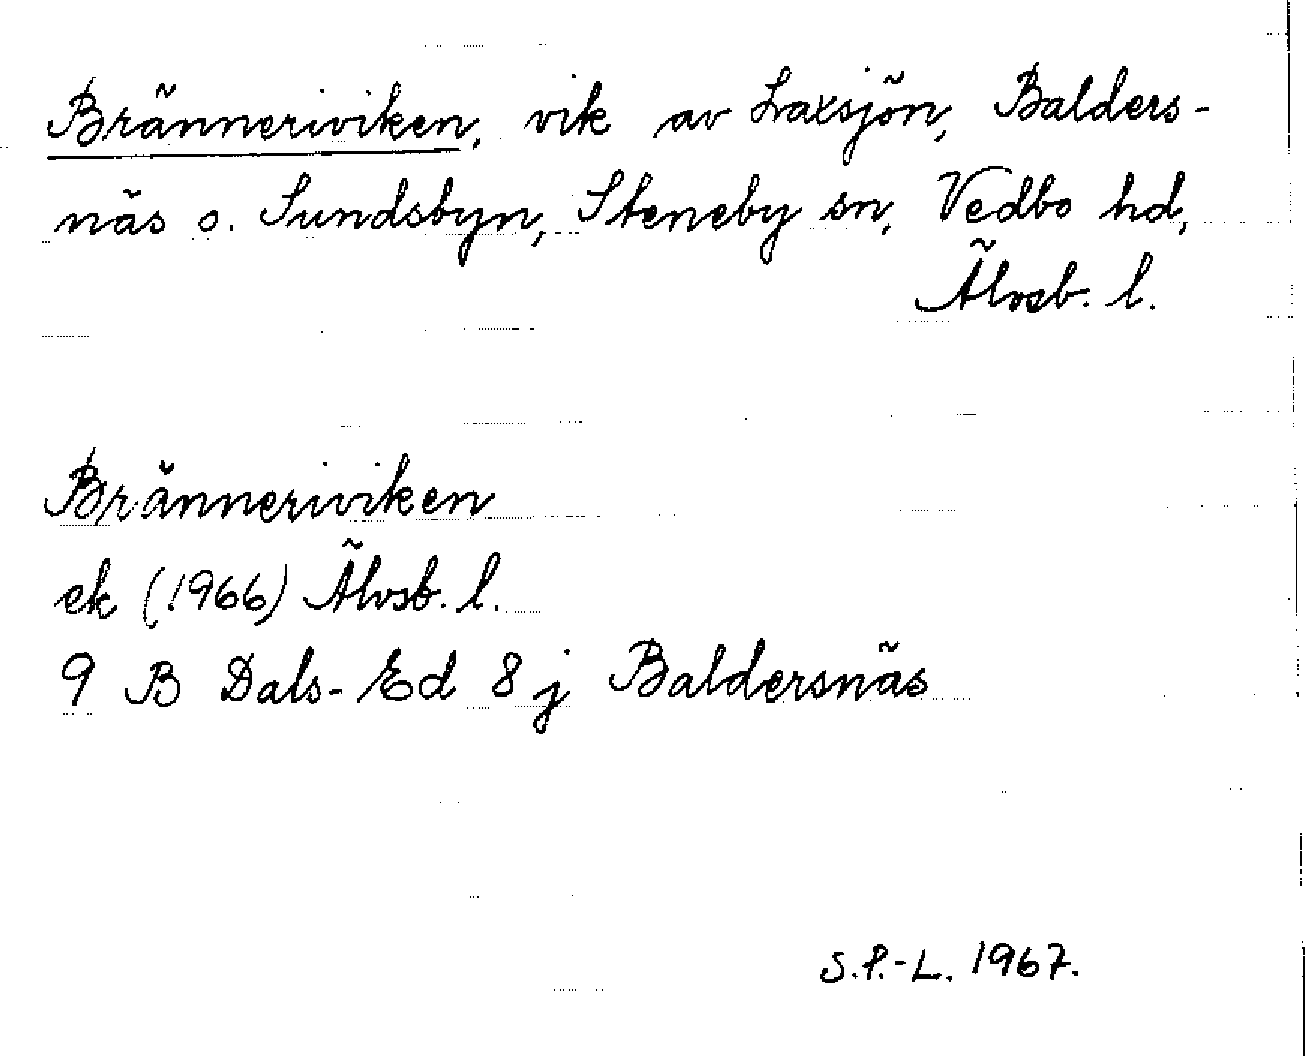 Bränneriviken, vik av Laxsjön, Balders-
näs o. Sundsbyn, Steneby sn, Vedbo hd,
Älvsb. l.
Bränneriviken
ek (1966) Älvsb. l.
9 B Dals-Ed 8 j Baldersnäs
S.P.-L. 1967.